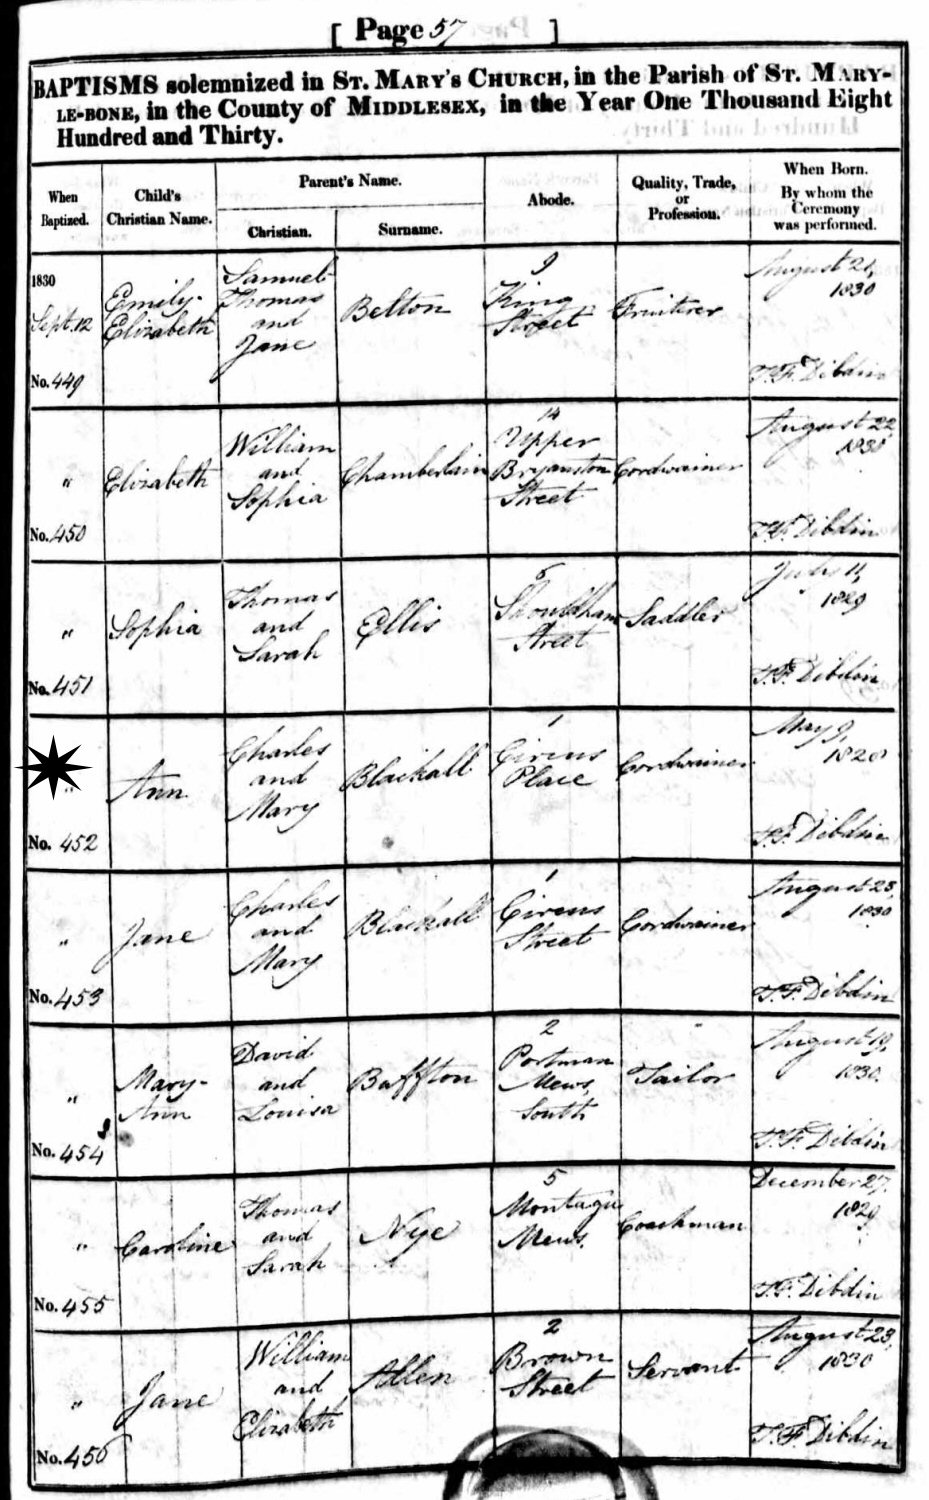 [ Page 57 ]
BAPTISMS solemnized in ST. MARY'S CHURCH, in the Parish of ST. MARY-
LE-BONE, in the County of MIDDLESEX, in the Year One Thousand Eight
Hundred and Thirty.
When
Baptized.
Child's
Christian Name.
Parent's Name.
Christian.
Surname.
Abode.
Quality, Trade,
or
Profession.
When Born.
By whom the
Ceremony
was performed.
1830
Sept. 12
No. 449
Emily
Elizabeth
Samuel
Thomas
and
Jane
Belton
9
King
Street
Fruiterer
August 21,
1830
T.F. Dibdin
"
No. 450
Elizabeth
William
and
Sophia
Chamberlain
14
Upper
Bryanston
Street
Cordwainer
August 22
1830
T.F. Dibdin
"
No. 451
Sophia
Thomas
and
Sarah
Ellis
5
Shouldham
Street
Saddler
July 11,
1829
T.F. Dibdin
"
No. 452
Ann
Charles
and
Mary
Blackall
1
Circus
Place
Cordwainer
May 9,
1828
T.F. Dibdin
"
No. 453
Jane
Charles
and
Mary
Blackall
1
Circus
Street
Cordwainer
August 23,
1830
T.F. Dibdin
"
No. 454
Mary-
Ann
David
and
Louisa
Buffton
2
Portman
Mews,
South
Tailor
August 19,
1830.
T.F. Dibdin
"
No. 455
Caroline
Thomas
and
Sarah
Nye
5
Montagu
Mews.
Coachman
December 27,
1829
T.F. Dibdin
"
No. 456
Jane
William
and
Elizabeth
Allen
2
Brown
Street
Servant
August 23,
1830
T.F. Dibdin